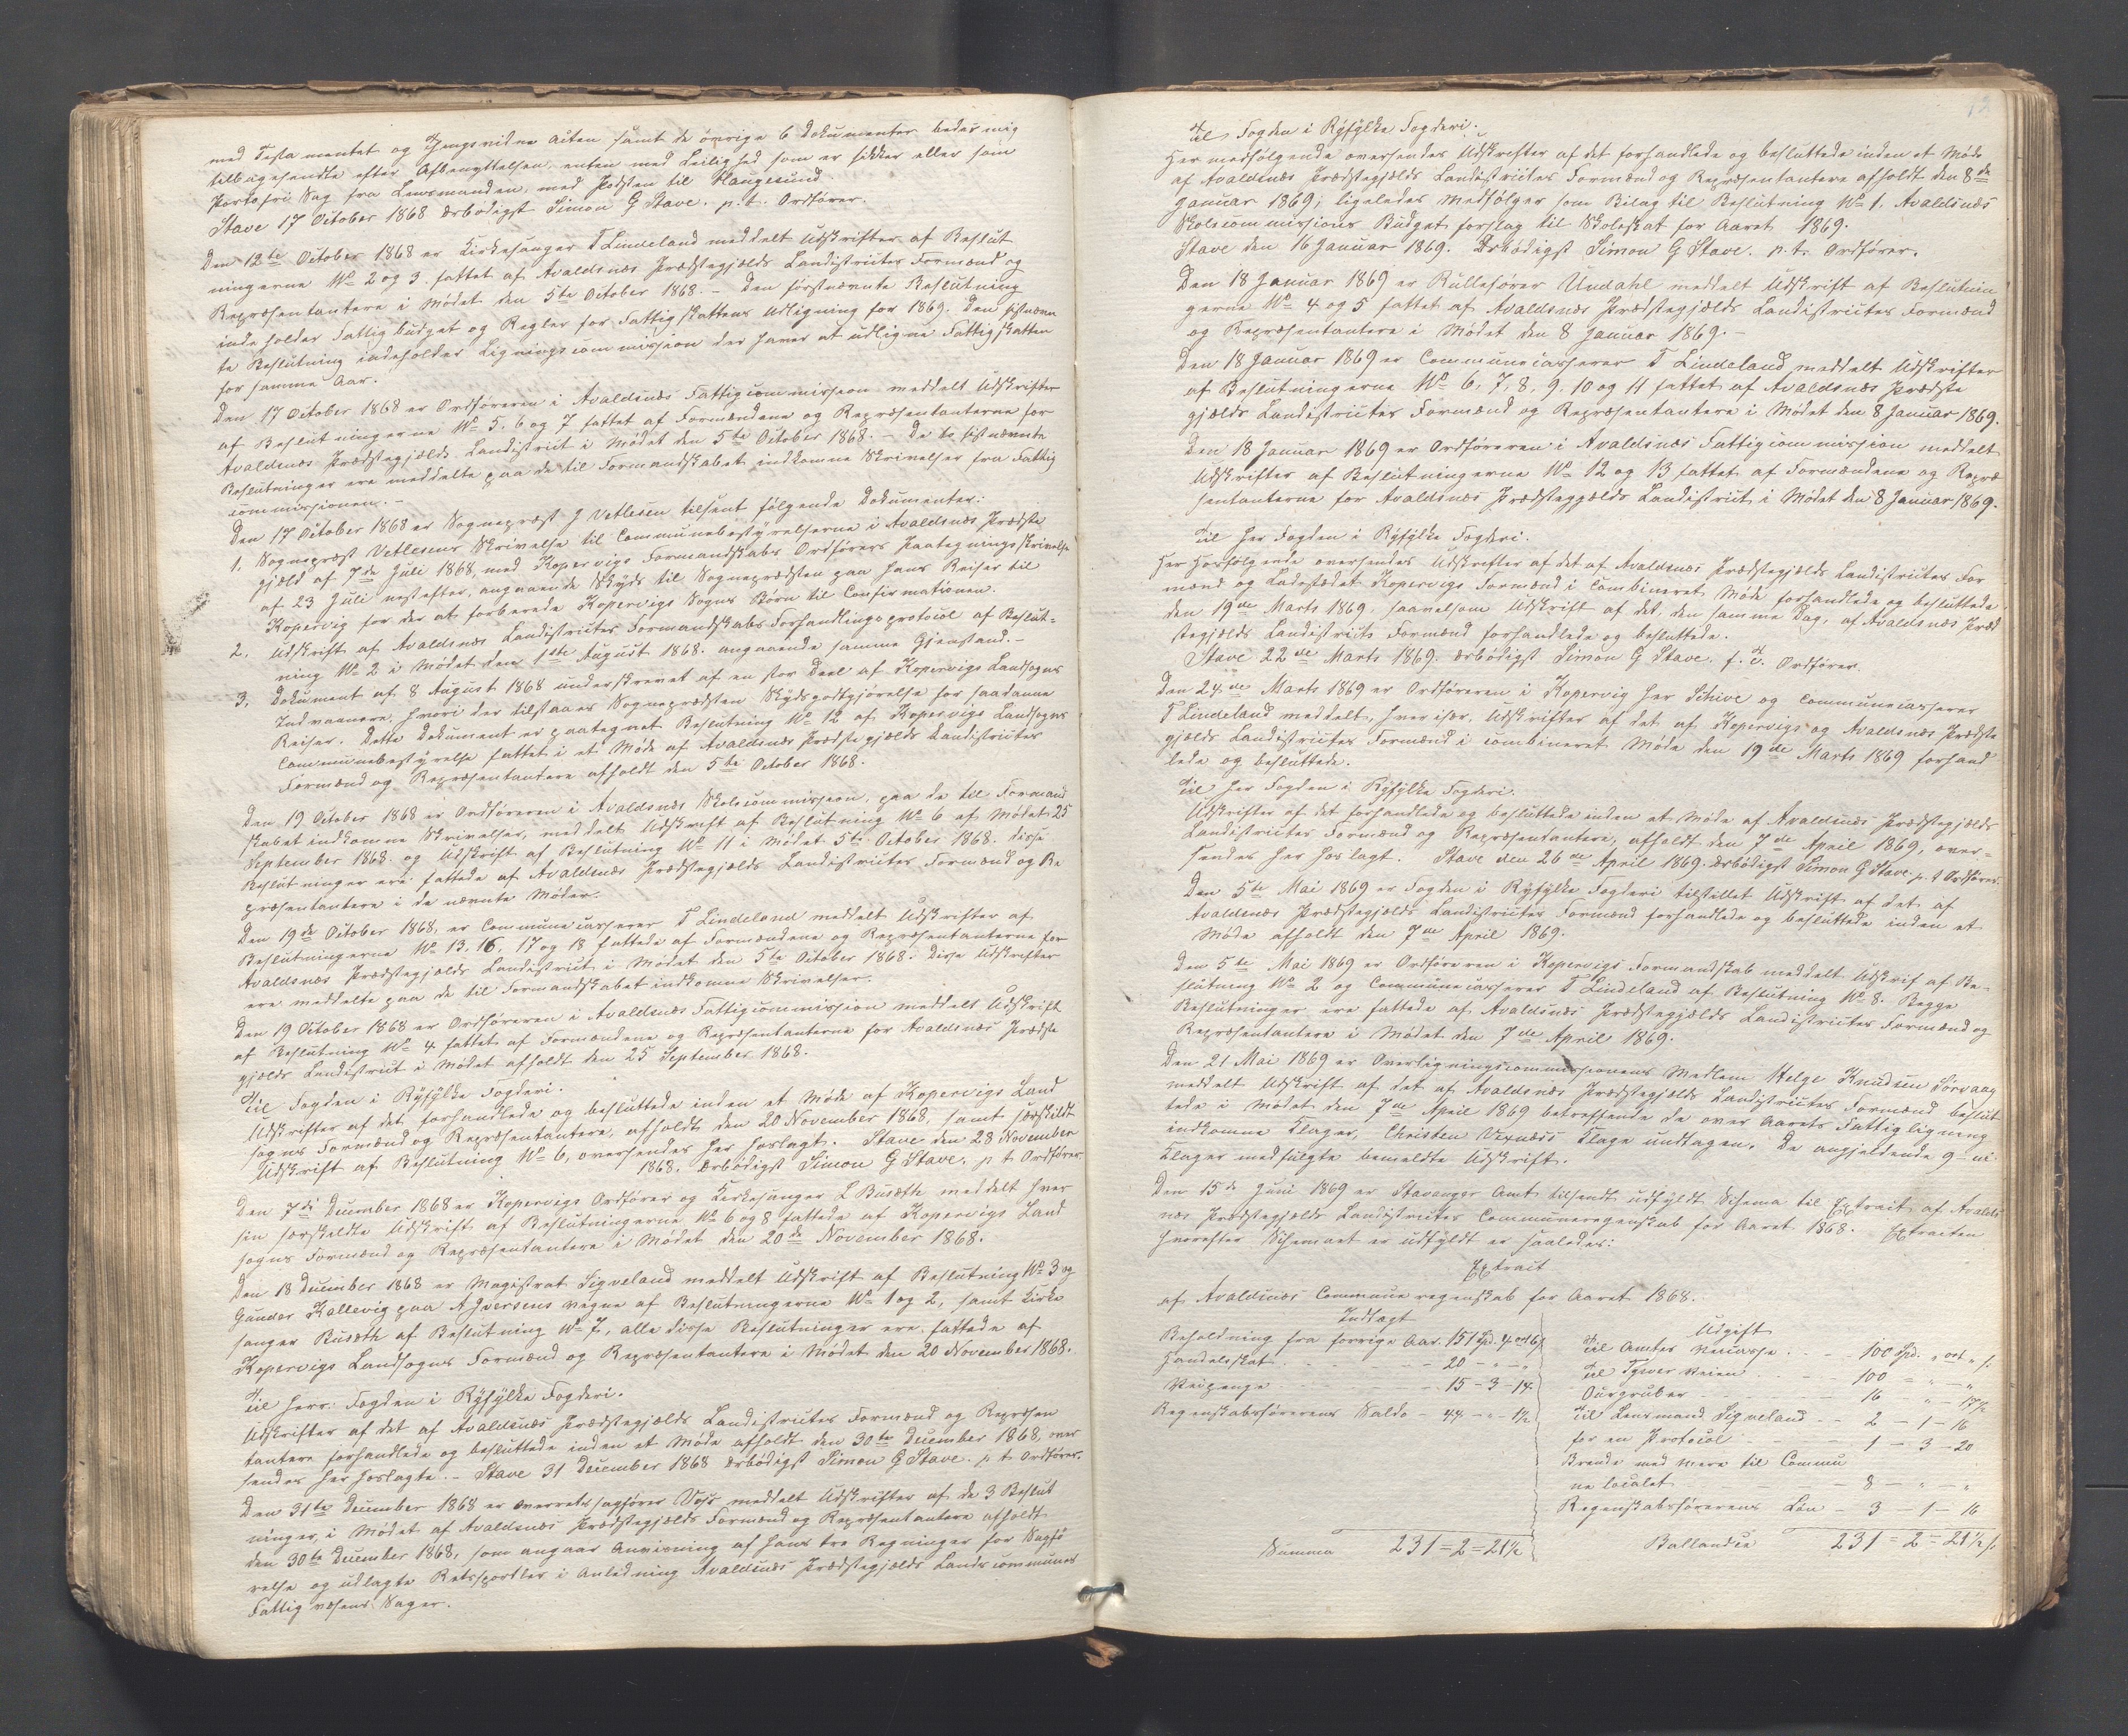 med Testamentet og Tingsvidne Acten samt de øvrige 6 Dokumenter bedes mig
tilbagesendte efter Afbenyttelsen, enten med Leilighed som er sikker eller som
Portofri Sag fra Lensmanden, med Posten til Haugesund.
Stave 17 October 1868 Ærbødigst Simon G Stave. p.t. Ordfører.
Den 12te October 1868 er Kirkesanger T Lindeland meddelt Udskrifter af Beslut
ningerne No 2 og 3 fattet af Avaldsnæs Præstegjælds Landistrictes Formænd og
Repræsentantere i Mødet den 5te October 1868. – Den førstnævnte Beslutning
inde holder Fattig budget og Regler for Fattigskattens Udligning for 1869. Den sistnævn
te Beslutning indeholder Ligningscommission der haver at udligne Fattigskatten
for samme Aar.
Den 17 October 1868 er Ordføreren i Avaldsnæs Fattigcommission meddelt Udskrifter
af Beslutningerne No 5, 6 og 7 fattet af Formændene og Repræsentanterne for
Avaldsnæs Præstegjælds Landistrict i Mødet den 5te October 1868. – De to sistnævnte
Beslutninger ere meddelte paa de til Formandskabet indkomne Skrivelser fra Fattig
commissionen. –
Den 17 October 1868 er Sognepræst J Vetlesen tilsent følgende Dokumenter:
1. Sognepræst Vetlesens Skrivelse til Communebestyrelserne i Avaldsnæs Præste
gjæld af 7de Juli 1868, med Kopervigs Formandskabs Ordførers Paategnings skrivelse
af 23 Juli nestefter, angaaende Skyds til Sognepræsten paa hans Reiser til
Kopervig for der at forberede Kopervigs Sogns Børn til Confirmationen.
2. Udskrift af Avaldsnæs Landistrictes Formandskabs Forhandlingsprotocol af Beslut-
ning No 2 i Mødet den 1ste August 1868. angaaende samme Gjenstand. –
3. Dokument af 8 August 1868 underskrevet af en stor Deel af Kopervigs Landsogns
Indvaanere, hvori der tilstaaes Sognepræsten Skydsgodtgjørelse for saadanne
Reiser. Dette Dokument er paategnet Beslutning No 12 af Kopervigs Landsogns
Communebestyrelse fattet i et Møde af Avaldsnæs Præstegjælds Landistrictes
Formænd og Repræsentantere afholdt den 5te October 1868.
Den 19 October 1868 er Ordføreren i Avaldsnæs Skolecommission, paa de til Formand
skabet indkomne Skrivelser, meddelt Udskrift af Beslutning No 6 af Mødet 25
September 1868 og Udskrift af Beslutning No 11 i Mødet 5te October 1868. disse
Beslutninger ere fattede af Avaldsnæs Præstegjælds Landistrictes Formænd og Re
præsentantere i de nævnte Møder.
Den 19de October 1868, er Communecasserer T Lindeland meddelt Udskrifter af
Beslutningerne No 13, 16, 17 og 18 fattede af Formændene og Repræsentanterne for
Avaldsnæs Præstegjælds Landistrict i Mødet den 5te October 1868. Disse Udskrifter
ere meddelte paa de til Formandskabet indkomne Skrivelser.
Den 19 October 1868 er Ordføreren i Avaldsnæs Fattigcommission meddelt Udskrift
af Beslutning No 4 fattet af Formændene og Repræsentanterne for Avaldsnæs Præste
gjælds Landistrict i Mødet afholdt den 25 September 1868.
Til Fogden i Ryfylke Fogderi.
Udskrifter af det forhandlede og besluttede inden et Møde af Kopervigs Land
sogns Formænd og Repræsentantere, afholdt den 20 November 1868, samt særskildt
Udskrift af Beslutning No 6, oversendes her hoslagt. Stave den 28 November
1868. Ærbødigst Simon G Stave. p t. Ordfører
Den 7de December 1868 er Kopervigs Ordfører og Kirkesanger L Busæth meddelt hver
sin særskildte Udskrift af Beslutningerne No 6 og 8 fattede af Kopervigs Land
sogns Formænd og Repræsentantere i Mødet den 20de November 1868.
Den 18 December 1868 er Magistrat Sigveland meddelt Udskrift af Beslutning No 3 og
Gunder Kallevig paa A Iversens vegne af Beslutningerne No 1 og 2, samt Kirke
sanger Busæth af Beslutning No 7, alle disse Beslutninger ere fattede af
Kopervigs Landsogns Formænd og Repræsentantere i Mødet den 20 November 1868.
Til Herr: Fogden i Ryfylke Fogderi.
Udskrifter af det af Avaldsnæs Præstegjælds Landistrictes Formænd og Repræsen
tantere forhandlede og besluttede inden et Møde afholdt den 30te December 1868, over
sendes her hoslagte. – Stave 31 December 1868 Ærbødigst Simon G Stave. p t. Ordfører.
Den 31te December 1868 er Overretssagfører Voss meddelt Udskrifter af de 3 Beslut
ninger, i Mødet af Avaldsnæs Præstegjælds Formænd og Repræsentantere afholdt
den 30te December 1868, som angaar Anvisning af hans tre Regninger for Sagfø
relse og udlagte Retssportler i Anledning Avaldsnæs Præstegjælds Landscommunes
Fattig væsens Sager.
Til Fogden i Ryfylke Fogderi.
Her medfølgende oversendes Udskrifter af det forhandlede og besluttede inden et Møde
af Avaldsnæs Præstegjælds Landistrictes Formænd og Repræsentantere afholdt den 8de
Januar 1869; ligeledes medfølger som Bilag til Beslutning No 1. Avaldsnæs
Skolecommissions Budget forslag til Skoleskat for Aaret 1869.
Stave den 16 Januar 1869. Ærbødigst Simon G Stave. p.t. Ordfører.
Den 18 Januar 1869 er Rullefører Undahl meddelt Udskrift af Beslutnin
gerne No 4 og 5 fattet af Avaldsnæs Præstegjælds Landistrictes Formænd
og Repræsentantere i Mødet den 8 Januar 1869. –
Den 18 Januar 1869 er Communecasserer T Lindeland meddelt Udskrifter
af Beslutningerne No 6, 7, 8, 9, 10 og 11 fattet af Avaldsnæs Præste
gjælds Landistrictes Formænd og Repræsentantere i Mødet den 8 Januar 1869.
Den 18 Januar 1869 er Ordføreren i Avaldsnæs Fattigcommission meddelt
Udskrifter af Beslutningerne No 12 og 13 fattet af Formændene og Repræ
sentanterne for Avaldsnæs Præstegjælds Landistrict i Mødet den 8 Januar 1869.
Til Her Fogden i Ryfylke Fogderi.
Her hosfølgende oversendes Udskrifter af det af Avaldsnæs Præstegjælds Landistrictes For
mænd og Ladestædet Kopervigs Formænd i Combineret Møde forhandlede og besluttede
den 19de Marts 1869, saavelsom Udskrift af det, den samme Dag, af Avaldsnæs Præ
stegjælds Landistricts Formænd forhandlede og besluttede.
Stave 22de Marts 1869. Ærbødigst Simon G Stave. f. T. Ordfører.
Den 24de Marts 1869 er Ordføreren i Kopervig Her Schive og Communecasserer
T Lindeland meddelt, hver især, Udskrifter af det af Kopervigs og Avaldsnæs Præste
gjælds Landistrictes Formænd i combineret Møde den 19de Marts 1869 forhand
lede og besluttede.
Til Her Fogden i Ryfylke Fogderi.
Udskrifter af det forhandlede og besluttede inden et Møde af Avaldsnæs Præstegjælds
Landistrictes Formænd og Repræsentantere, afholdt den 7de April 1869, over-
sendes her hoslagt. Stave den 26de April 1869. Ærbødigst Simon G Stave p. t Ordfører.
Den 5te Mai 1869 er Fogden i Ryfylke Fogderi tilstillet Udskrift af det af
Avaldsnæs Præstegjælds Landistrictes Formænd forhandlede og besluttede inden et
Møde afholdt den 7de April 1869.
Den 5te Mai 1869 er Ordføreren i Kopervigs Formandskab meddelt Udskrif af Be-
slutning No 2 og Communecasserer T Lindeland af Beslutning No 8. Begge
Beslutninger ere fattede af Avaldsnæs Præstegjælds Landistrictes Formænd og
Repræsentantere i Mødet den 7de April 1869.
Den 21 Mai 1869 er Overligningscommissionens Medlem Helge Knudsen Sørvaag
meddelt Udskrift af det af Avaldsnæs Præstegjælds Landistrictes Formænd beslut
tede i Mødet den 7de April 1869 betreffende de over Aarets Fattigligning
indkomne Klager, Christen Vixnæss Klage undtagen. De angjeldende 9 – ni
Klager medfulgte bemeldte Udskrift.
Den 15de Juni 1869 er Stavanger Amt tilsendt udfyldt Schema til Extrait af Avalds
næs Præstegjælds Landistrictes Communeregenskab for Aaret 1868. Extraiten
hvorefter Schemaet er udfyldt er saaledes:
Extrait
af Avaldsnæs Commune regenskab for Aaret 1868.
Indtægt
Beholdning fra forrige Aar. 151 Spd. 4 ort 16 s
Handelsskat – 20 – „ – „
Veipenge – 15 – 3 – 14.
Regenskabsførerens Saldo – 44 – „ – 1½
Summa 231 = 2 = 21½
Udgift
Til Amtes Veicasse – 100 Spd. „ ort „ s.
Til Tysver Veien – 100 – „ – „
Ourgruber – 16 – „ – 17½
Til Lensmand Sigveland – 2 – 1 – 16
for en Protocol – 1 – 3 – 20
Brende med mere til Commu
ne localet – 8 – „ – „
Regenskabsførerens Løn – 3 – 1 – 16
Ballandse 231 = 2 = 21½ s.